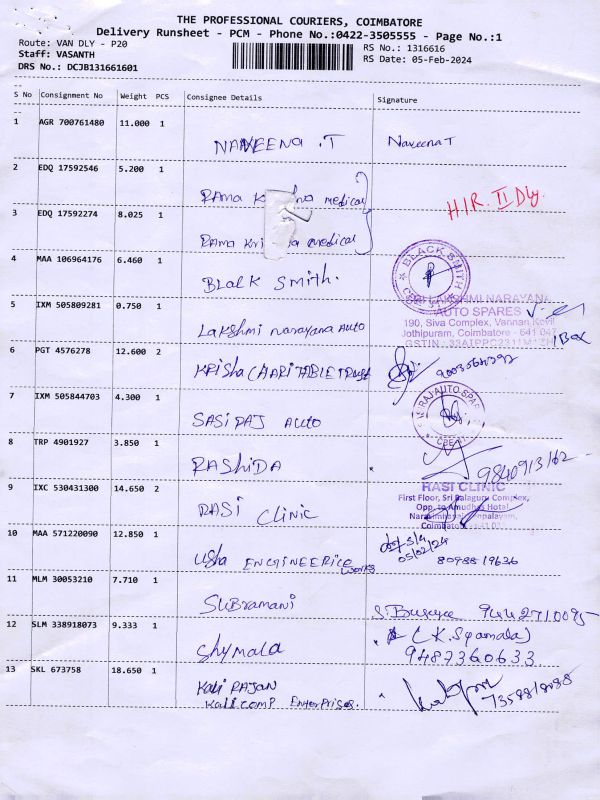 THE PROFESSIONAL COURIERS, COIMBATORE
Delivery Runsheet - PCM - Phone No.:0422-3505555 - Page No.:1
Route: VAN DLY - P20
Staff: VASANTH
DRS No.: DCJB131661601
RS No.: 1316616
RS Date: 05-Feb-2024
S No Consignment No Weight PCS Consignee Details Signature
1 AGR 700761480 11.000 1 NAVEENA .T Naveena T
2 EDQ 17592546 5.200 1 RAMA medical
H.I.R. II Dly
3 EDQ 17592274 8.025 1 RAMA medical
4 MAA 106964176 6.460 1 Black Smith. BLACK SMITH
SRI LAKSHMI NARAYANA
AUTO SPARES
5 IXM 505809281 0.750 1 Lakshmi narayana Auto 190, Siva Complex, Vannan Kovil
Jothipuram, Coimbatore - 641 047
1 Box
6 PGT 4576278 12.600 2 KRISHA CHARITABLE TRUST
7 IXM 505844703 4.300 1 SASI RAJ AUTO
8 TRP 4901927 3.850 1 RASHIDA 9840913162
9 IXC 530431300 14.650 2 RASI CLINIC RASI CLINIC
First Floor, Sri Balaguru Complex,
Opp. to Amudha Hotal,
Coimbatore
10 MAA 571220090 12.850 1 Usha ENGINEERING WORKS 05/02/24 8098819636
11 MLM 30053210 7.710 1 SUBRAMANI
12 SLM 338918073 9.333 1 Shymala (K. Syamala)
9487360633
13 SKL 673758 18.650 1 Kali RAJAN
Kali comp Enterprises.